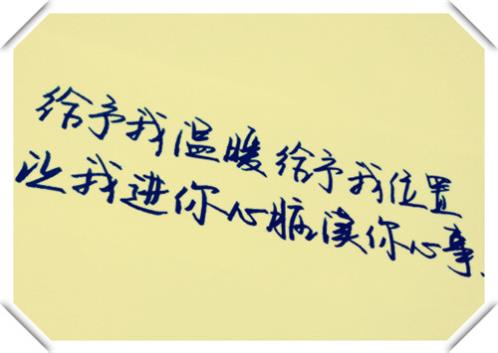 给予我温暖给予我位置
让我进你心脏读你心事.